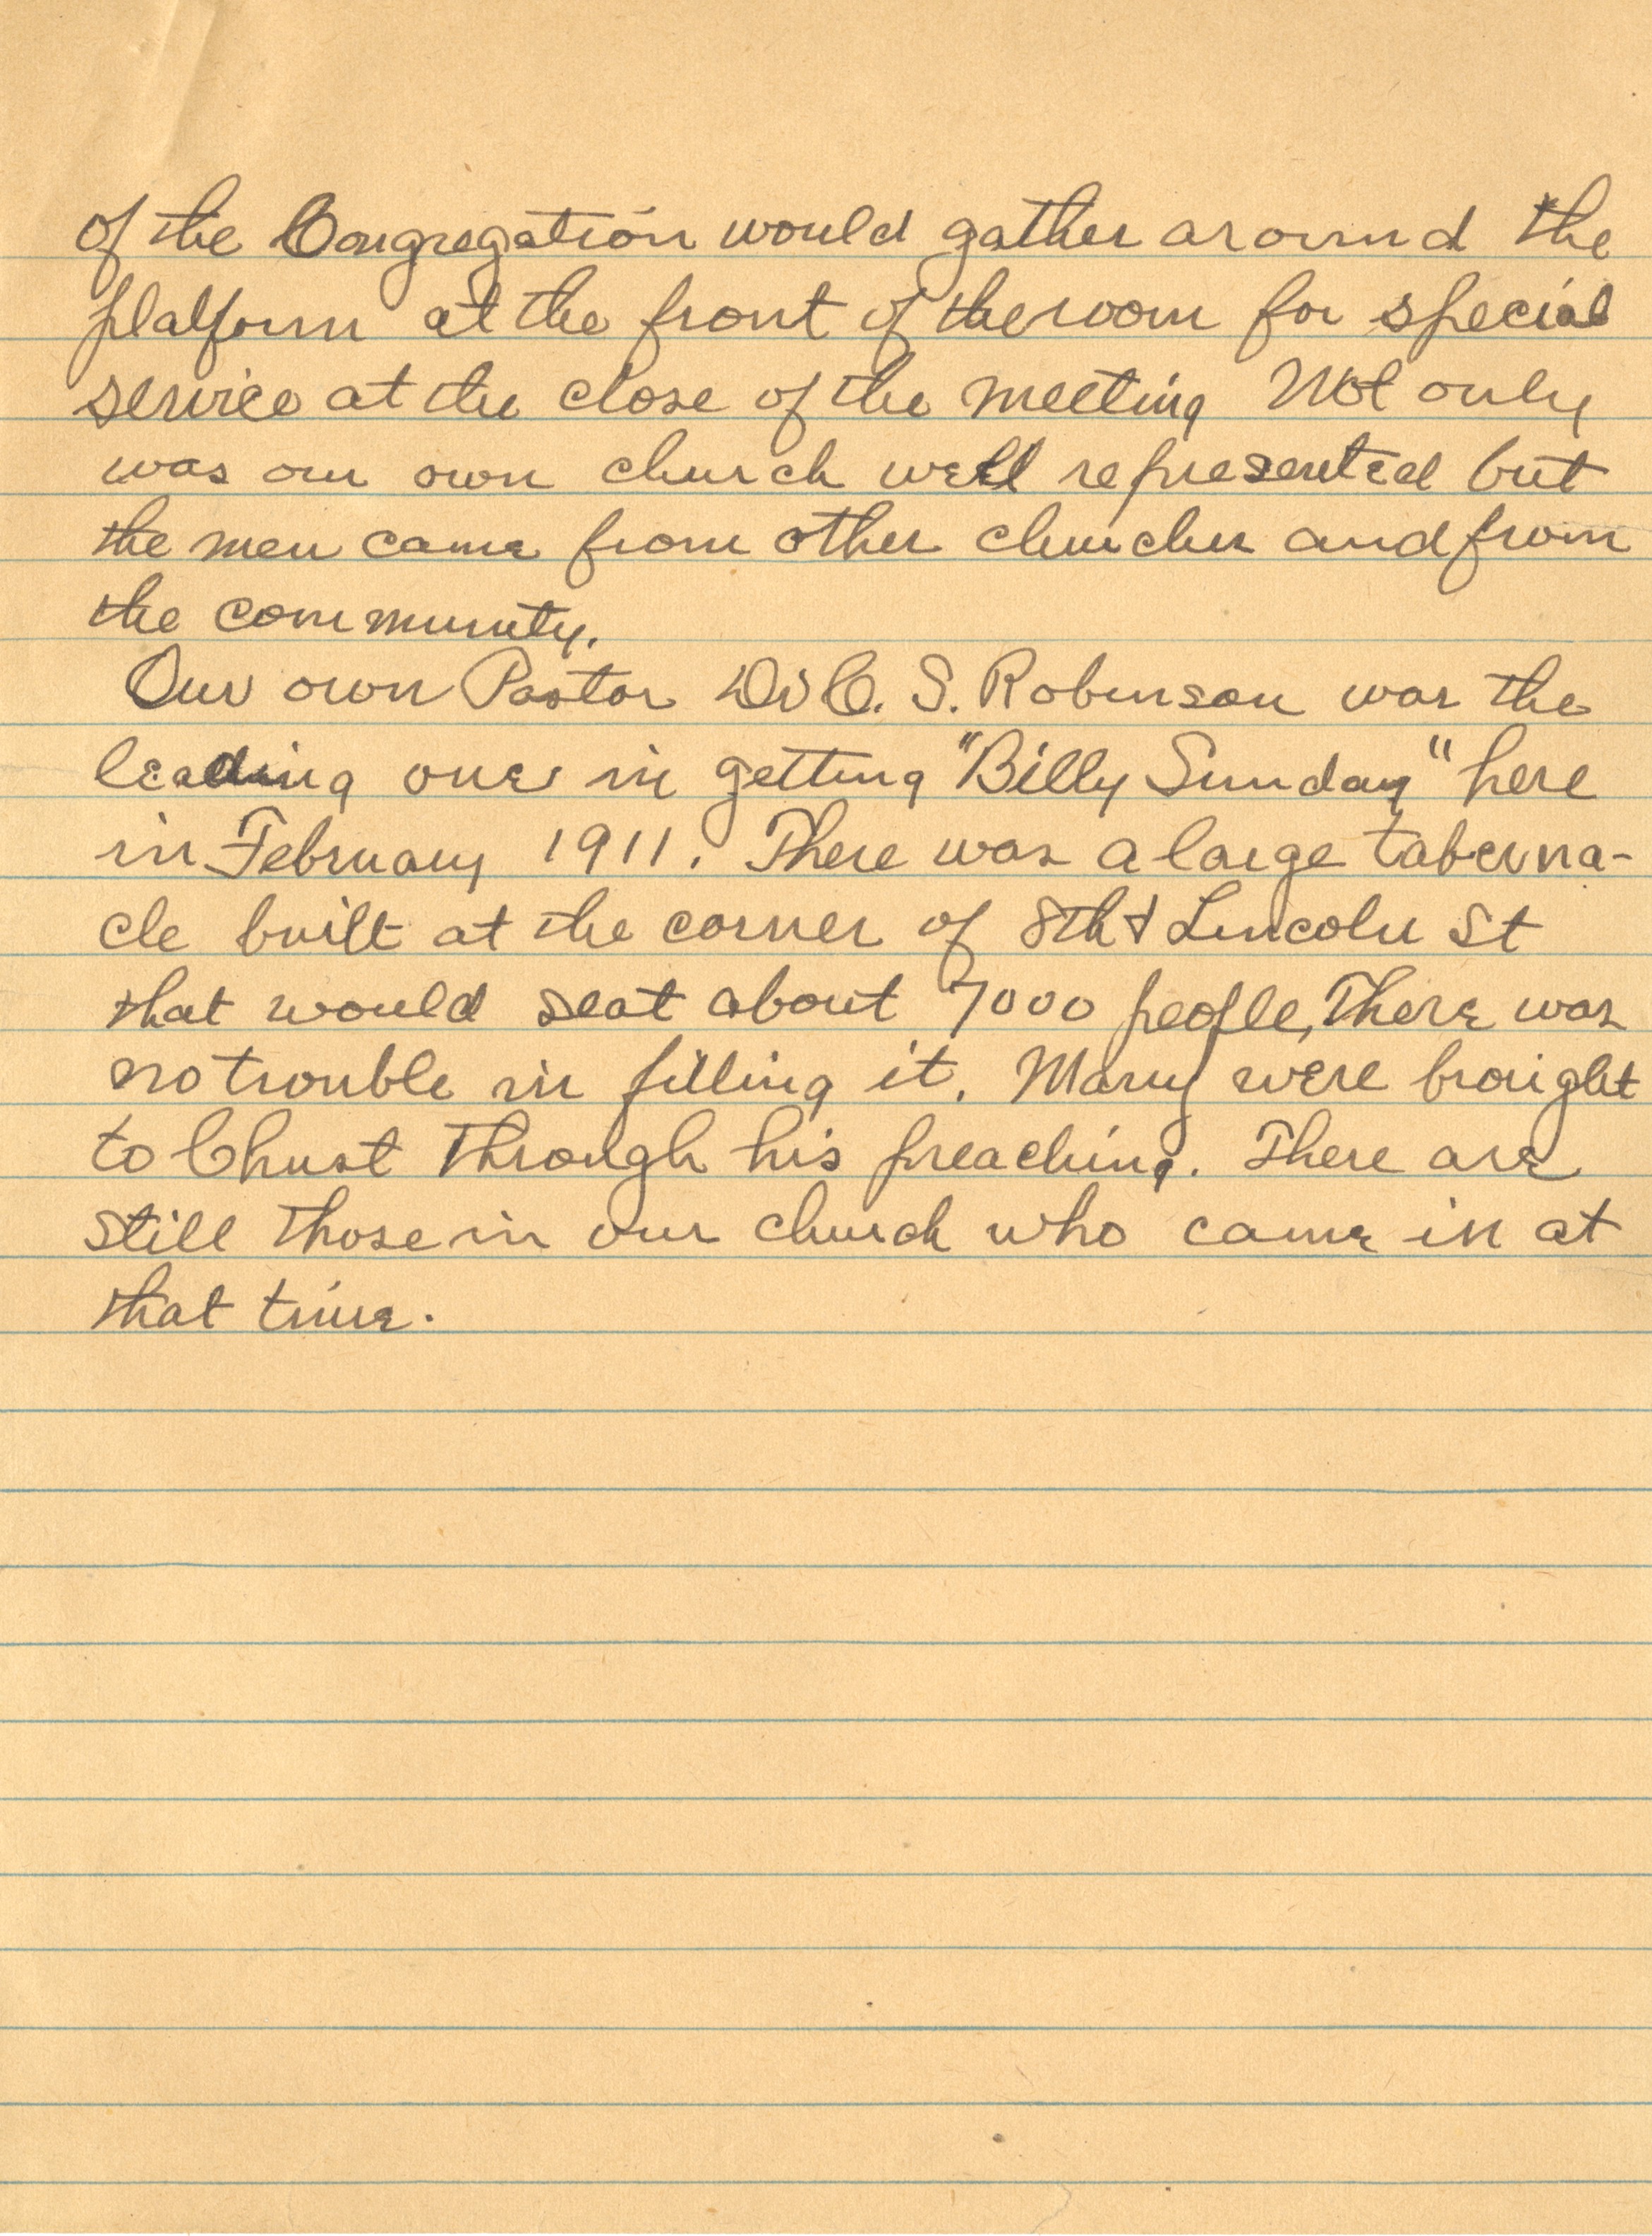 of the Congregation would gather around the
platform at the front of the room for special
service at the close of the meeting Not only
was our own church well represented but
the men came from other churches and from
the community.
Our own Pastor Dr C. S. Robinson was the
leading one in getting "Billy Sunday" here
in February 1911. There was a large taberna-
cle built at the corner of 8th & Lincoln St
that would seat about 7000 people, There was
no trouble in filling it. Many were brought
to Christ through his preaching. There are
still those in our church who came in at
that time.